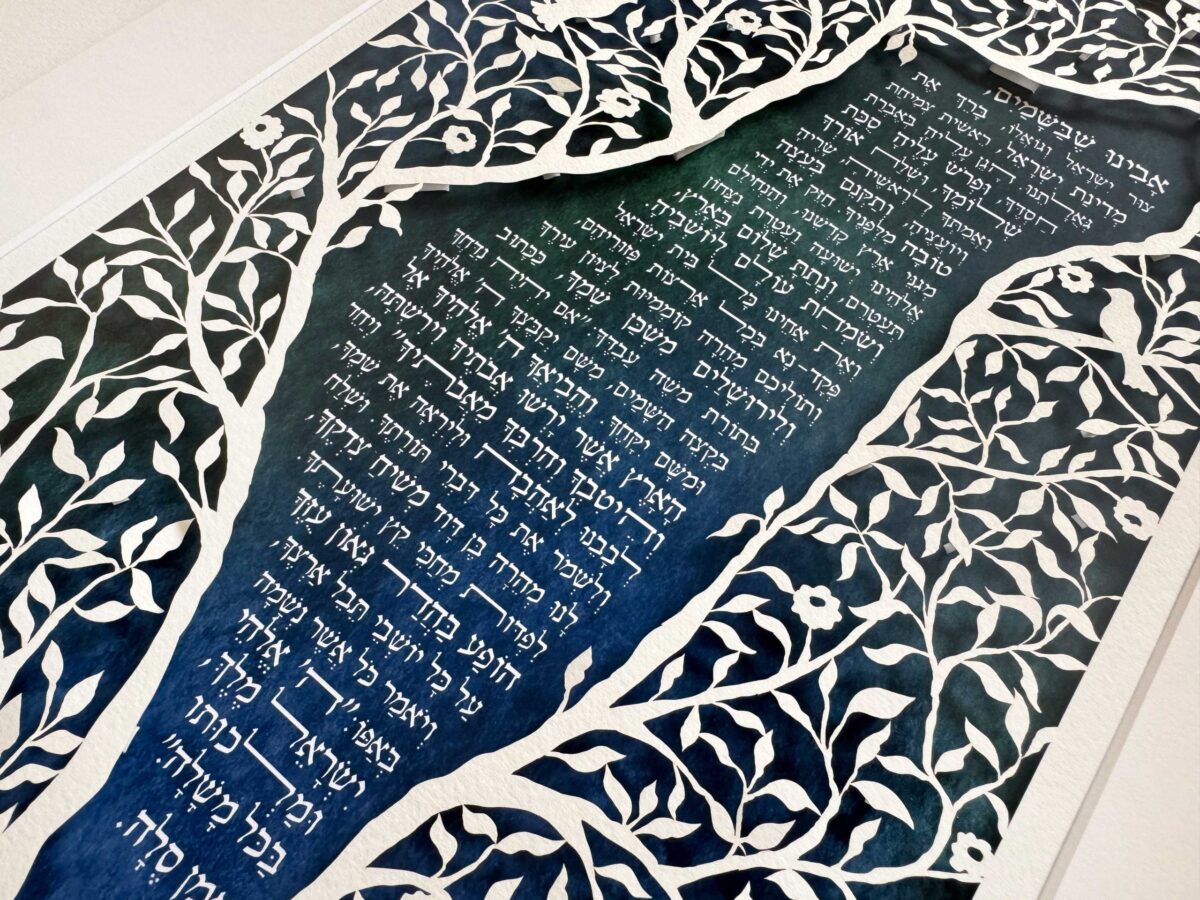 אָבִינוּ שֶׁבַּשָּׁמַיִם,
צוּר יִשְׂרָאֵל וְגוֹאֲלוֹ, בָּרֵךְ אֶת
מְדִינַת יִשְׂרָאֵל, רֵאשִׁית צְמִיחַת
גְּאֻלָּתֵנוּ. הָגֵן עָלֶיהָ בְּאֶבְרַת
חַסְדֶּךָ, וּפְרֹשׂ עָלֶיהָ סֻכַּת
שְׁלוֹמֶךָ, וּשְׁלַח אוֹרְךָ
וַאֲמִתְּךָ לְרָאשֶׁיהָ, שָׂרֶיהָ
וְיוֹעֲצֶיהָ, וְתַקְּנֵם בְּעֵצָה
טוֹבָה מִלְּפָנֶיךָ. חַזֵּק אֶת יְדֵי
מְגִנֵּי אֶרֶץ קָדְשֵׁנוּ, וְהַנְחִילֵם
אֱלֹהֵינוּ יְשׁוּעָה וַעֲטֶרֶת נִצָּחוֹן
תְּעַטְּרֵם, וְנָתַתָּ שָׁלוֹם בָּאָרֶץ,
וְשִׂמְחַת עוֹלָם לְיוֹשְׁבֶיהָ.
וְאֶת אַחֵינוּ כָּל בֵּית יִשְׂרָאֵל
פְּקָד-נָא בְּכָל אַרְצוֹת פְּזוּרֵיהֶם,
וְתוֹלִיכֵם מְהֵרָה קוֹמְמִיּוּת לְצִיּוֹן עִירֶךָ
וְלִירוּשָׁלַיִם מִשְׁכַּן שְׁמֶךָ, כַּכָּתוּב
בְּתוֹרַת מֹשֶׁה עַבְדֶּךָ: "אִם יִהְיֶה נִדַּחֲךָ
בִּקְצֵה הַשָּׁמַיִם, מִשָּׁם יְקַבֶּצְךָ ה' אֱלֹהֶיךָ
וּמִשָּׁם יִקָּחֶךָ וֶהֱבִיאֲךָ ה' אֱלֹהֶיךָ אֶל
הָאָרֶץ אֲשֶׁר יָרְשׁוּ אֲבֹתֶיךָ וִירִשְׁתָּהּ,
וְהֵיטִבְךָ וְהִרְבְּךָ מֵאֲבֹתֶיךָ" וְיַחֵד
לְבָבֵנוּ לְאַהֲבָה וּלְיִרְאָה אֶת שְׁמֶךָ,
וְלִשְׁמֹר אֶת כָּל דִּבְרֵי תּוֹרָתֶךָ וּשְׁלַח
לָנוּ מְהֵרָה בֶּן דָּוִד מְשִׁיחַ צִדְקֶךָ
לִפְדּוֹת מְחַכֵּי קֵץ יְשׁוּעָתֶךָ
הוֹפַע בַּהֲדַר גְּאוֹן עֻזֶּךָ
עַל כָּל יוֹשְׁבֵי תֵּבֵל אַרְצֶךָ,
וְיֹאמַר כֹּל אֲשֶׁר נְשָׁמָה
בְּאַפּוֹ: "ה', אֱלֹהֵי
יִשְׂרָאֵל מֶלֶךְ,
וּמַלְכוּתוֹ
בַּכֹּל מָשָׁלָה".
סֶלָה.